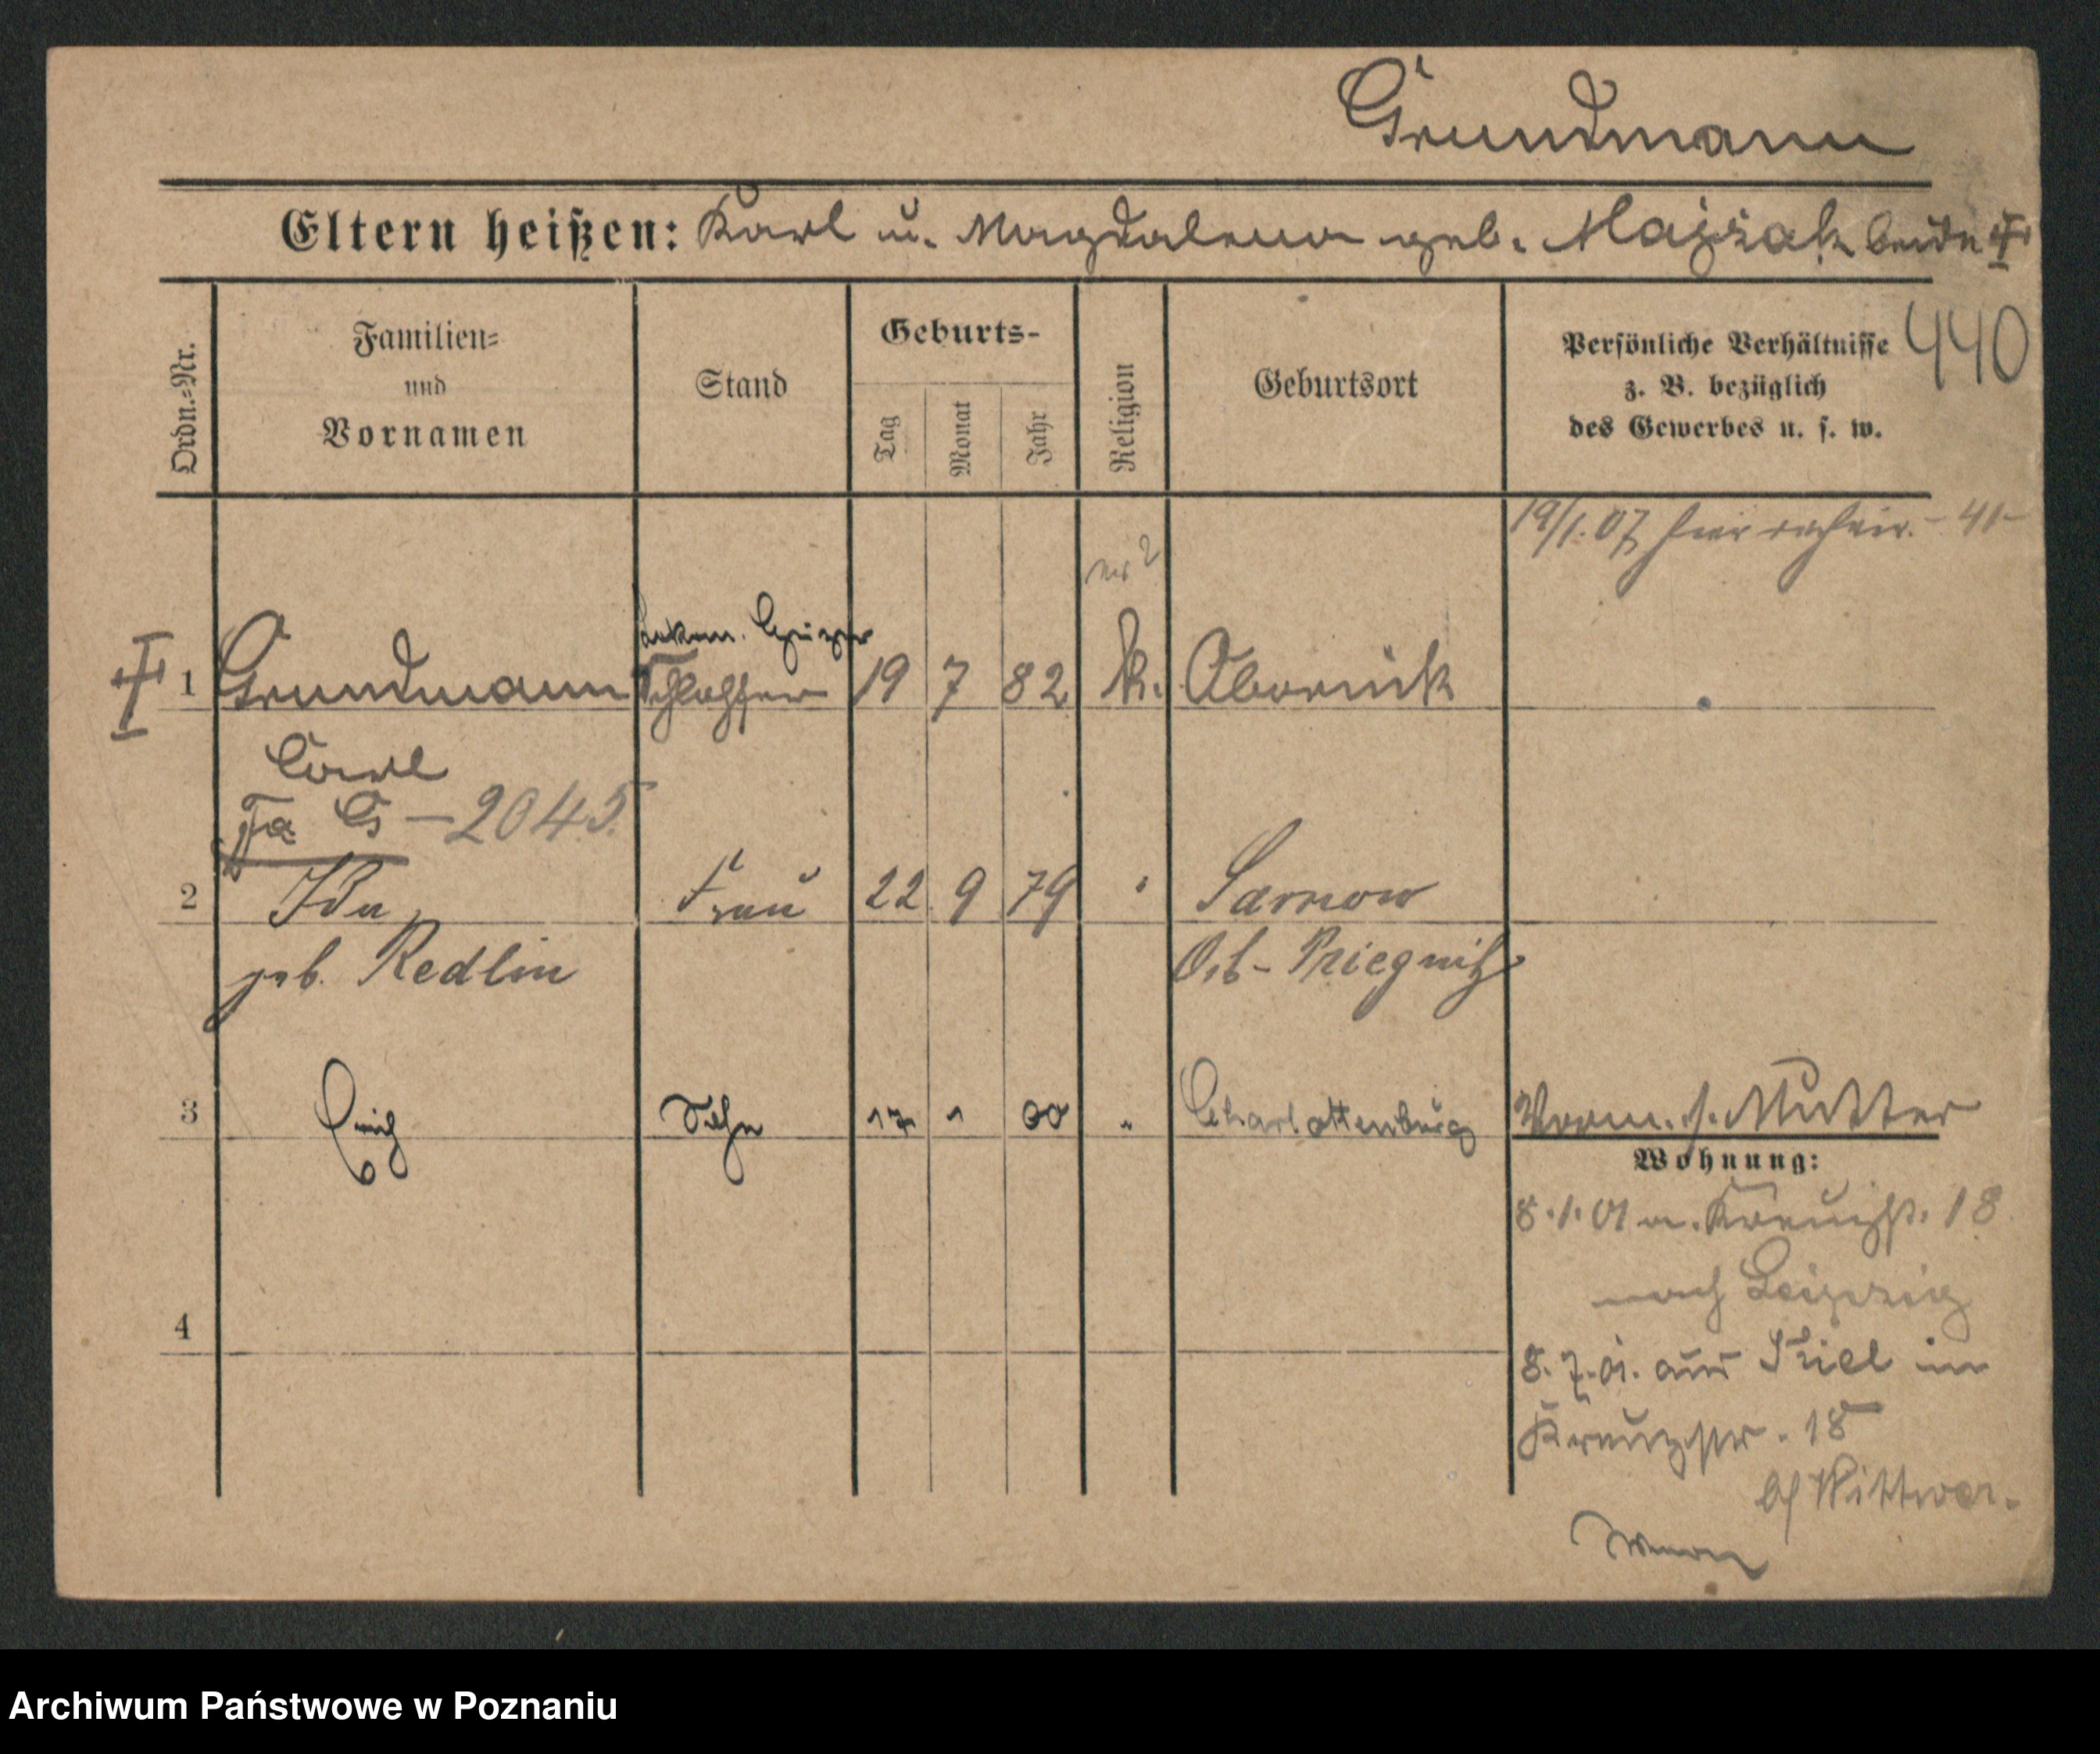 Grundmann
Eltern heißen: Karl u. Magdalena geb. Majzak beide
440
Ordn.=Nr.
Familien=
und
Vornamen
Stand
Geburts-
Tag
Monat
Jahr
Religion
Geburtsort
Persönliche Verhältnisse
z. B. bezüglich
des Gewerbes u. s. w.
19/1.07 hier
Heizer
1 Grundmann Schlosser 19 7 82 k. Obornick
Carl
G - 2045
2 Ida Frau 22 9 79 " Sarnow
geb. Redlin Ost-Priegnitz
3 Erich Sohn 17 1 00 " Charlottenburg Vorm. s. Mutter
Wohnung:
8.1.01 a. Kreuzstr. 18
nach Leipzig
4
8.7.01. aus Kiel in
Kreuzstr. 18
b/ Wittwer.
Archiwum Państwowe w Poznaniu